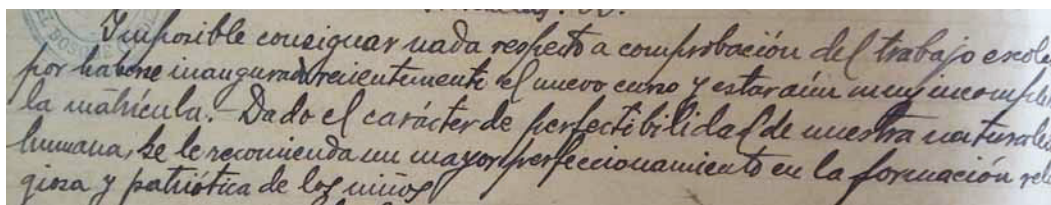 Imposible consignar nada respecto a comprobación del trabajo escola
por haberse inaugurado recientemente el nuevo curso y estar aún muy incomple
la matrícula.- Dado el carácter de perfectibilidad de nuestra naturale
humana, se le recomienda un mayor perfeccionamiento en la formación reli
giosa y patriótica de los niños